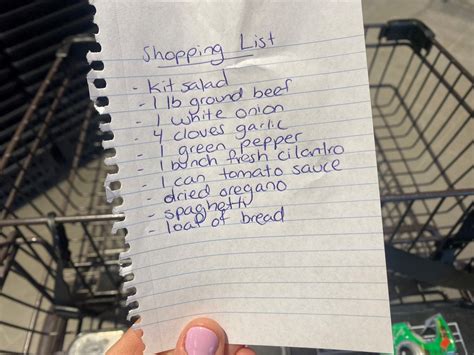 Shopping List
- Kit salad
- 1 lb ground beef
- 1 white onion
- 4 cloves garlic
- 1 green pepper
- 1 bunch fresh cilantro
- 1 can tomato sauce
- dried oregano
- spaghetti
- loaf of bread